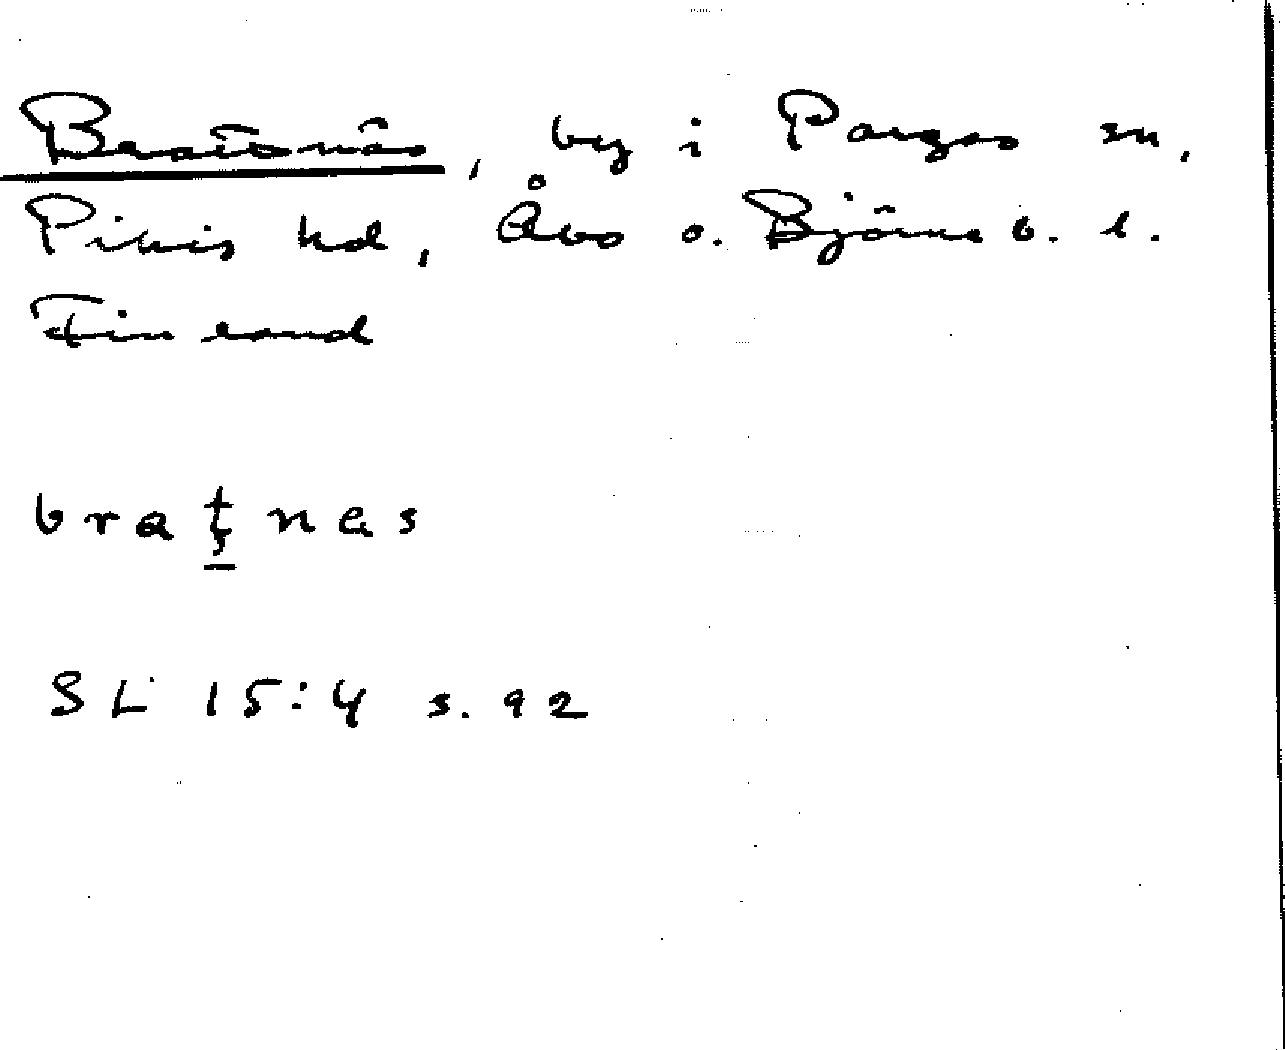 Brattnäs, by i Pargas sn,
Pikis hd, Åbo o. Björneb. l.
Finland
braţnas
SL 15:4 s. 92